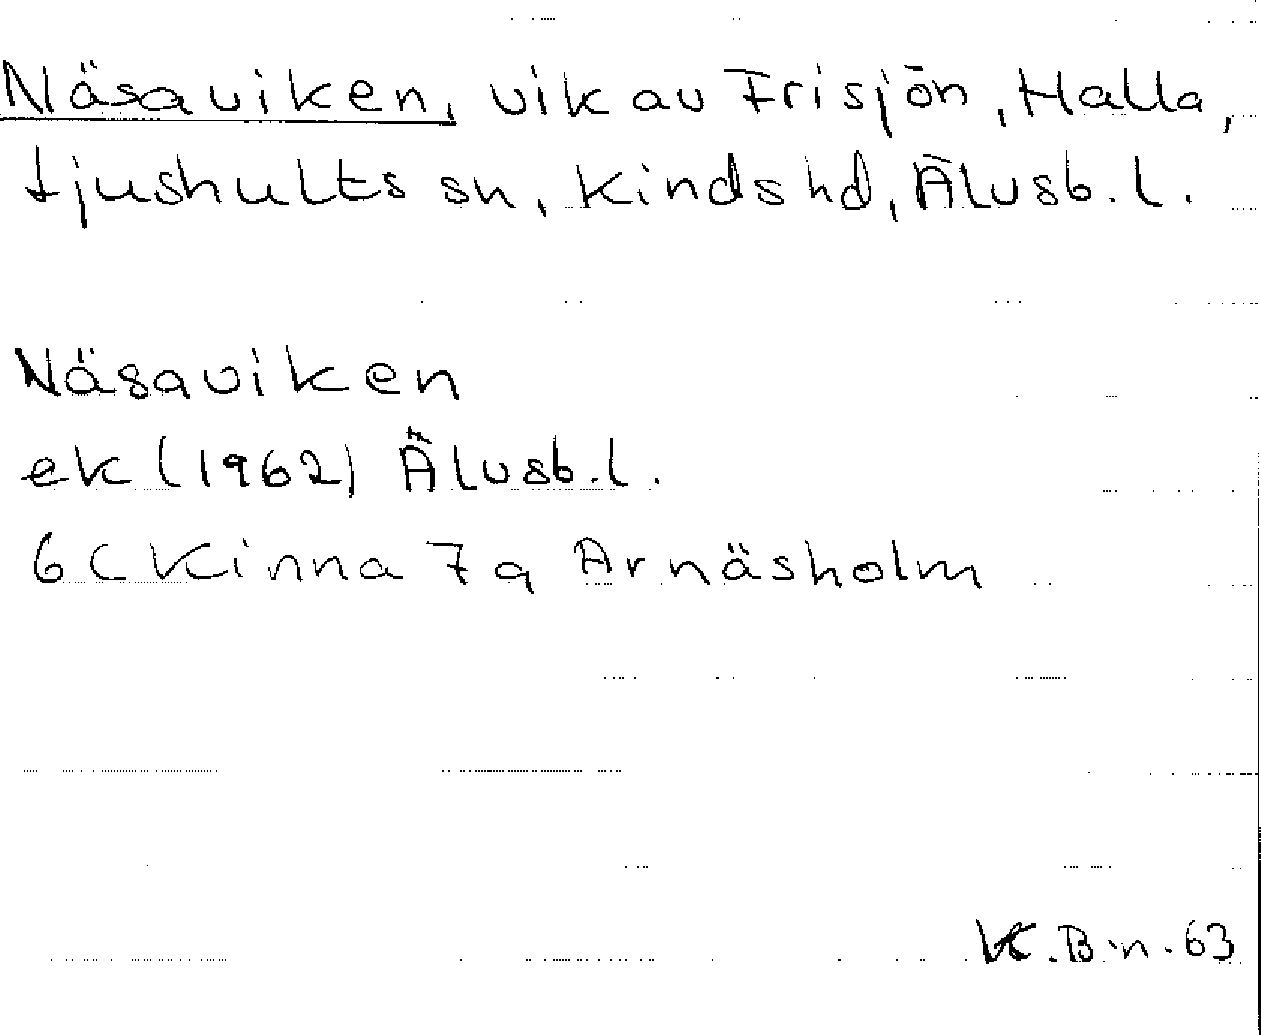 Näsaviken, vik av Frisjön, Halla,
Ljushults sn, Kinds hd, Älvsb. l.
Näsaviken
ek (1962) Älvsb. l.
6 C Kinna 7 a Arnäsholm
K.B-n. 63